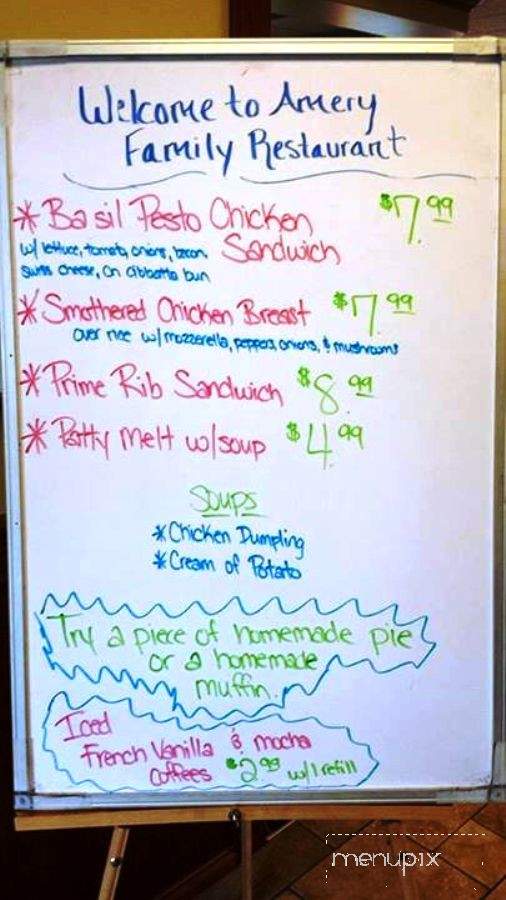 Welcome to Amery
Family Restaurant
* Basil Pesto Chicken $7.99
w/ lettuce, tomato, onions, bacon, Sandwich
swiss cheese, on cibbatta bun
* Smothered Chicken Breast $7.99
over rice w/ mozzerella, peppers, onions, & mushrooms
* Prime Rib Sandwich $8.99
* Patty Melt w/soup $4.99
Soups
* Chicken Dumpling
* Cream of Potato
Try a piece of homemade pie
or a homemade
muffin.
Iced
French Vanilla & mocha
coffees $2.99 w/1 refill
menupix